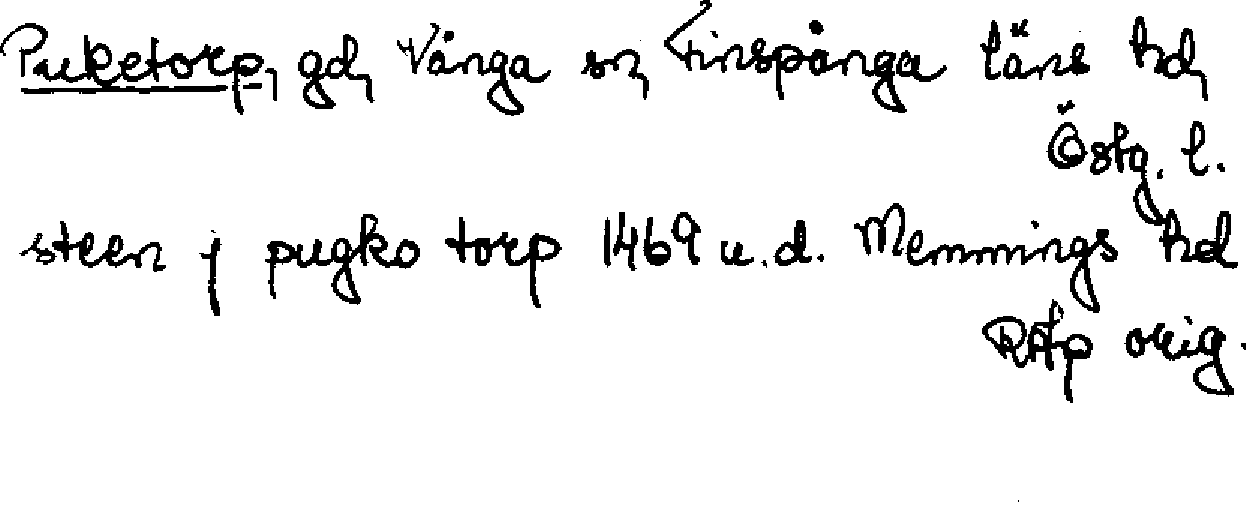 Puketorp, gd, Vånga sn, Finspånga läns hd,
Östg. l.
steen j pugko torp 1469 u.d. Memmings hd
RAp orig.